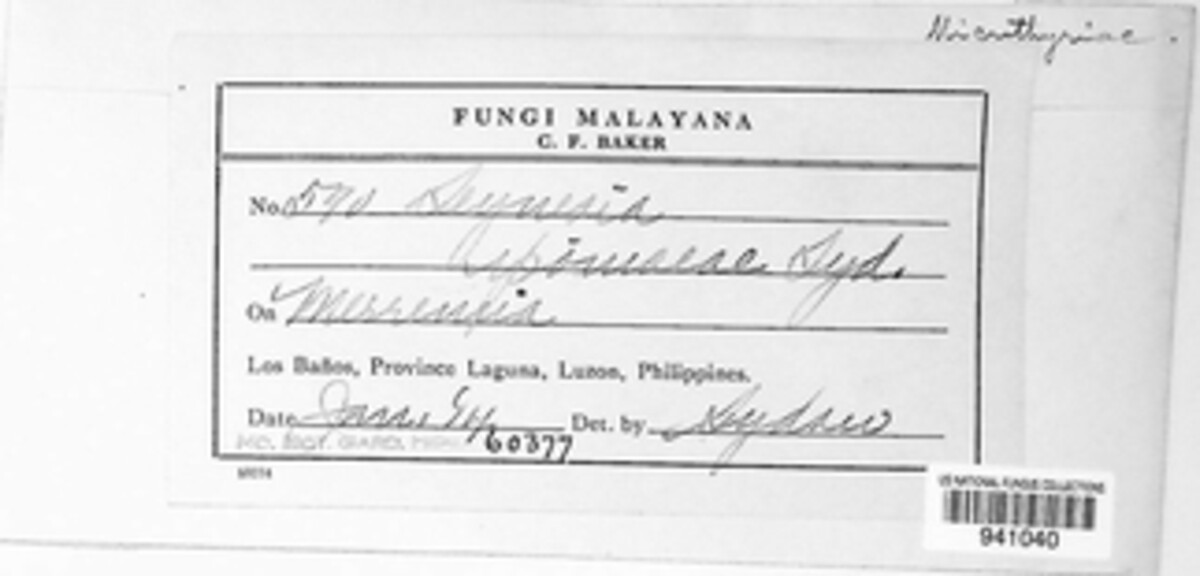 Microthyriac.
FUNGI MALAYANA
C. F. BAKER
No. 570 Seynesia
ipomoeae Syd.
On Merremia
Los Baños, Province Laguna, Luzon, Philippines.
Date Jan. Det. by Sydow
MO. BOT. GARD. HERB. 60377
US NATIONAL FUNGUS COLLECTIONS
941040